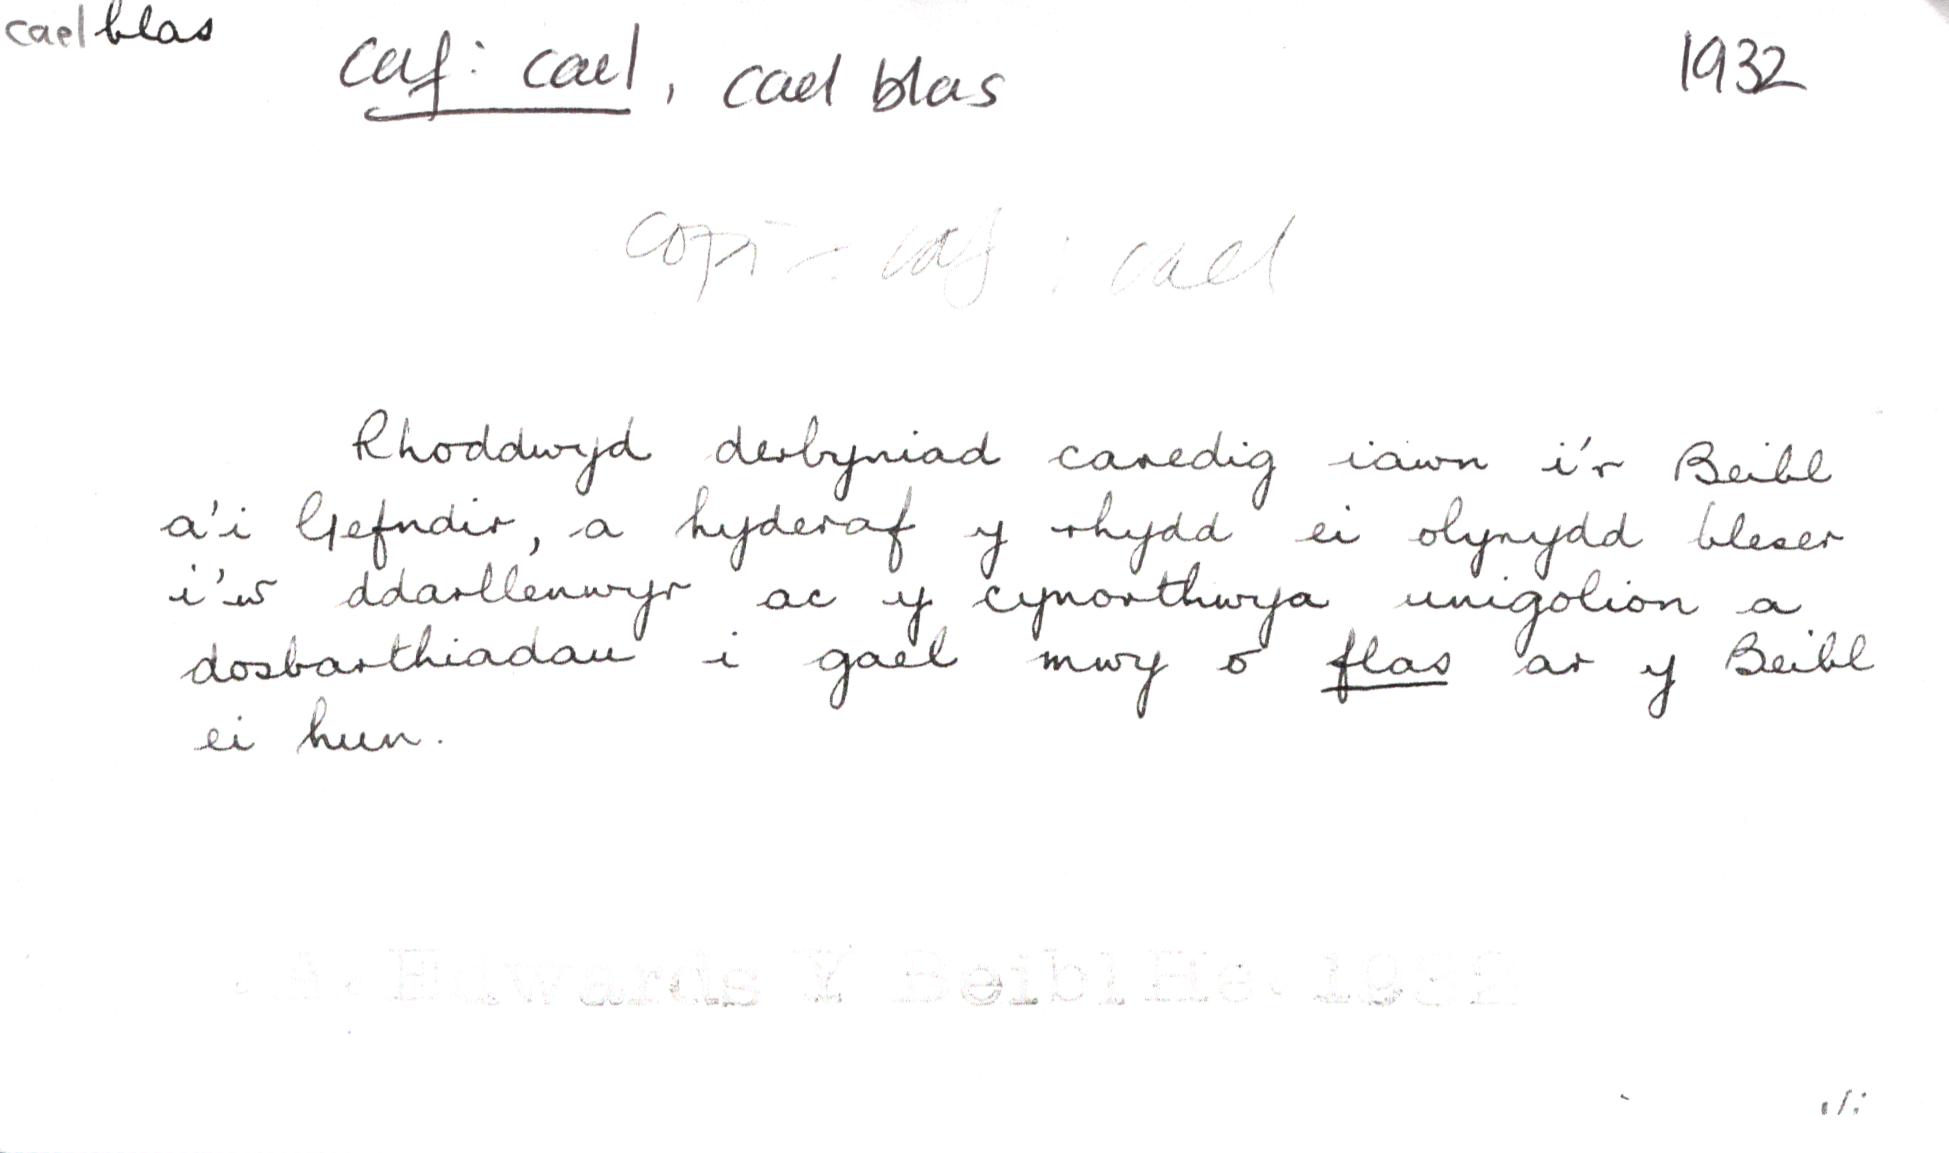 cael blas
caf: cael, cael blas
1932
copi - caf : cael
Rhoddwyd derbyniad caredig iawn i'r Beibl
a'i Gefndir, a hyderaf y rhydd ei olynydd bleser
i'w ddarllenwyr ac y cynorthwya unigolion a
dosbarthiadau i gael mwy o flas ar y Beibl
ei hun.
A. Edwards Y Beibl He. 1932